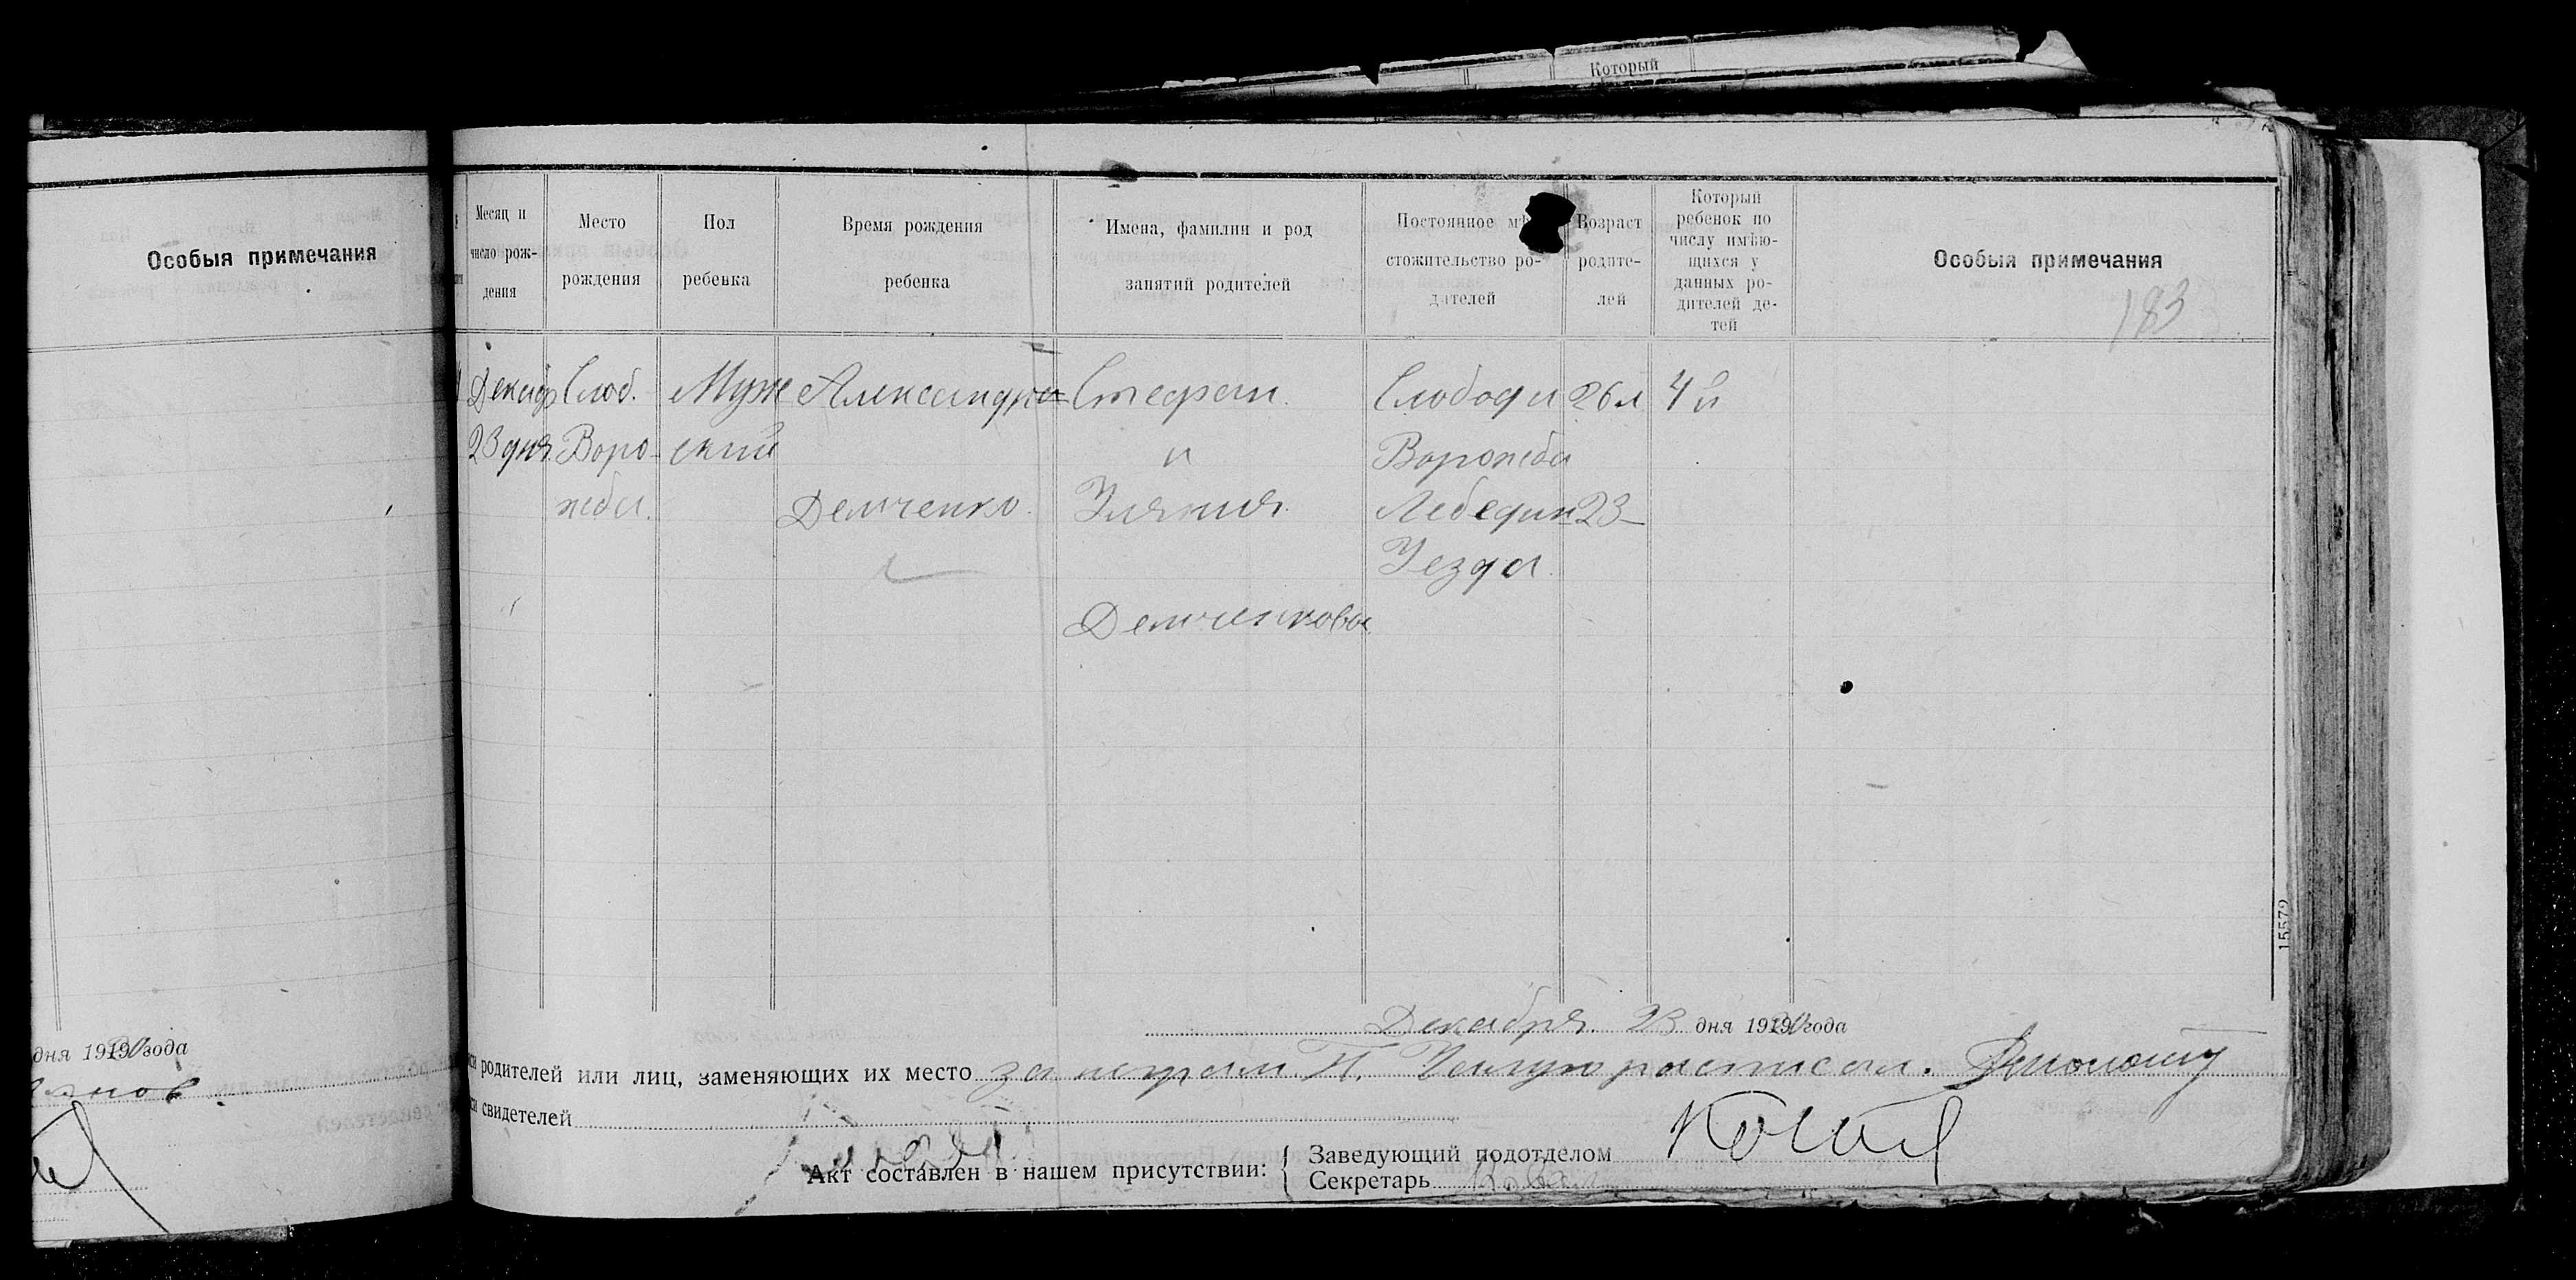 Который
Особыя примечания
Месяц и число рождения
Место рождения
Пол ребенка
Время рождения ребенка
Имена, фамилии и род занятий родителей
Постоянное мѣстожительство родителей
Возраст родителей
Который ребенок по числу имѣющихся у данных родителей детей
Особыя примечания
183
Декабр Слоб. Муж Александра Стефан Слобода 26 л 4й
23 дня Воро- ский и Ворожба
жба. Демченко Уляния Лебедин 23
Уезда
Демченковы
15579
Декабря 23 дня 1920 года
дня 1920 года
родителей или лиц, заменяющих их место за неграм. П. расписал.
свидетелей
Акт составлен в нашем присутствии:
Заведующий подотделом
Секретарь